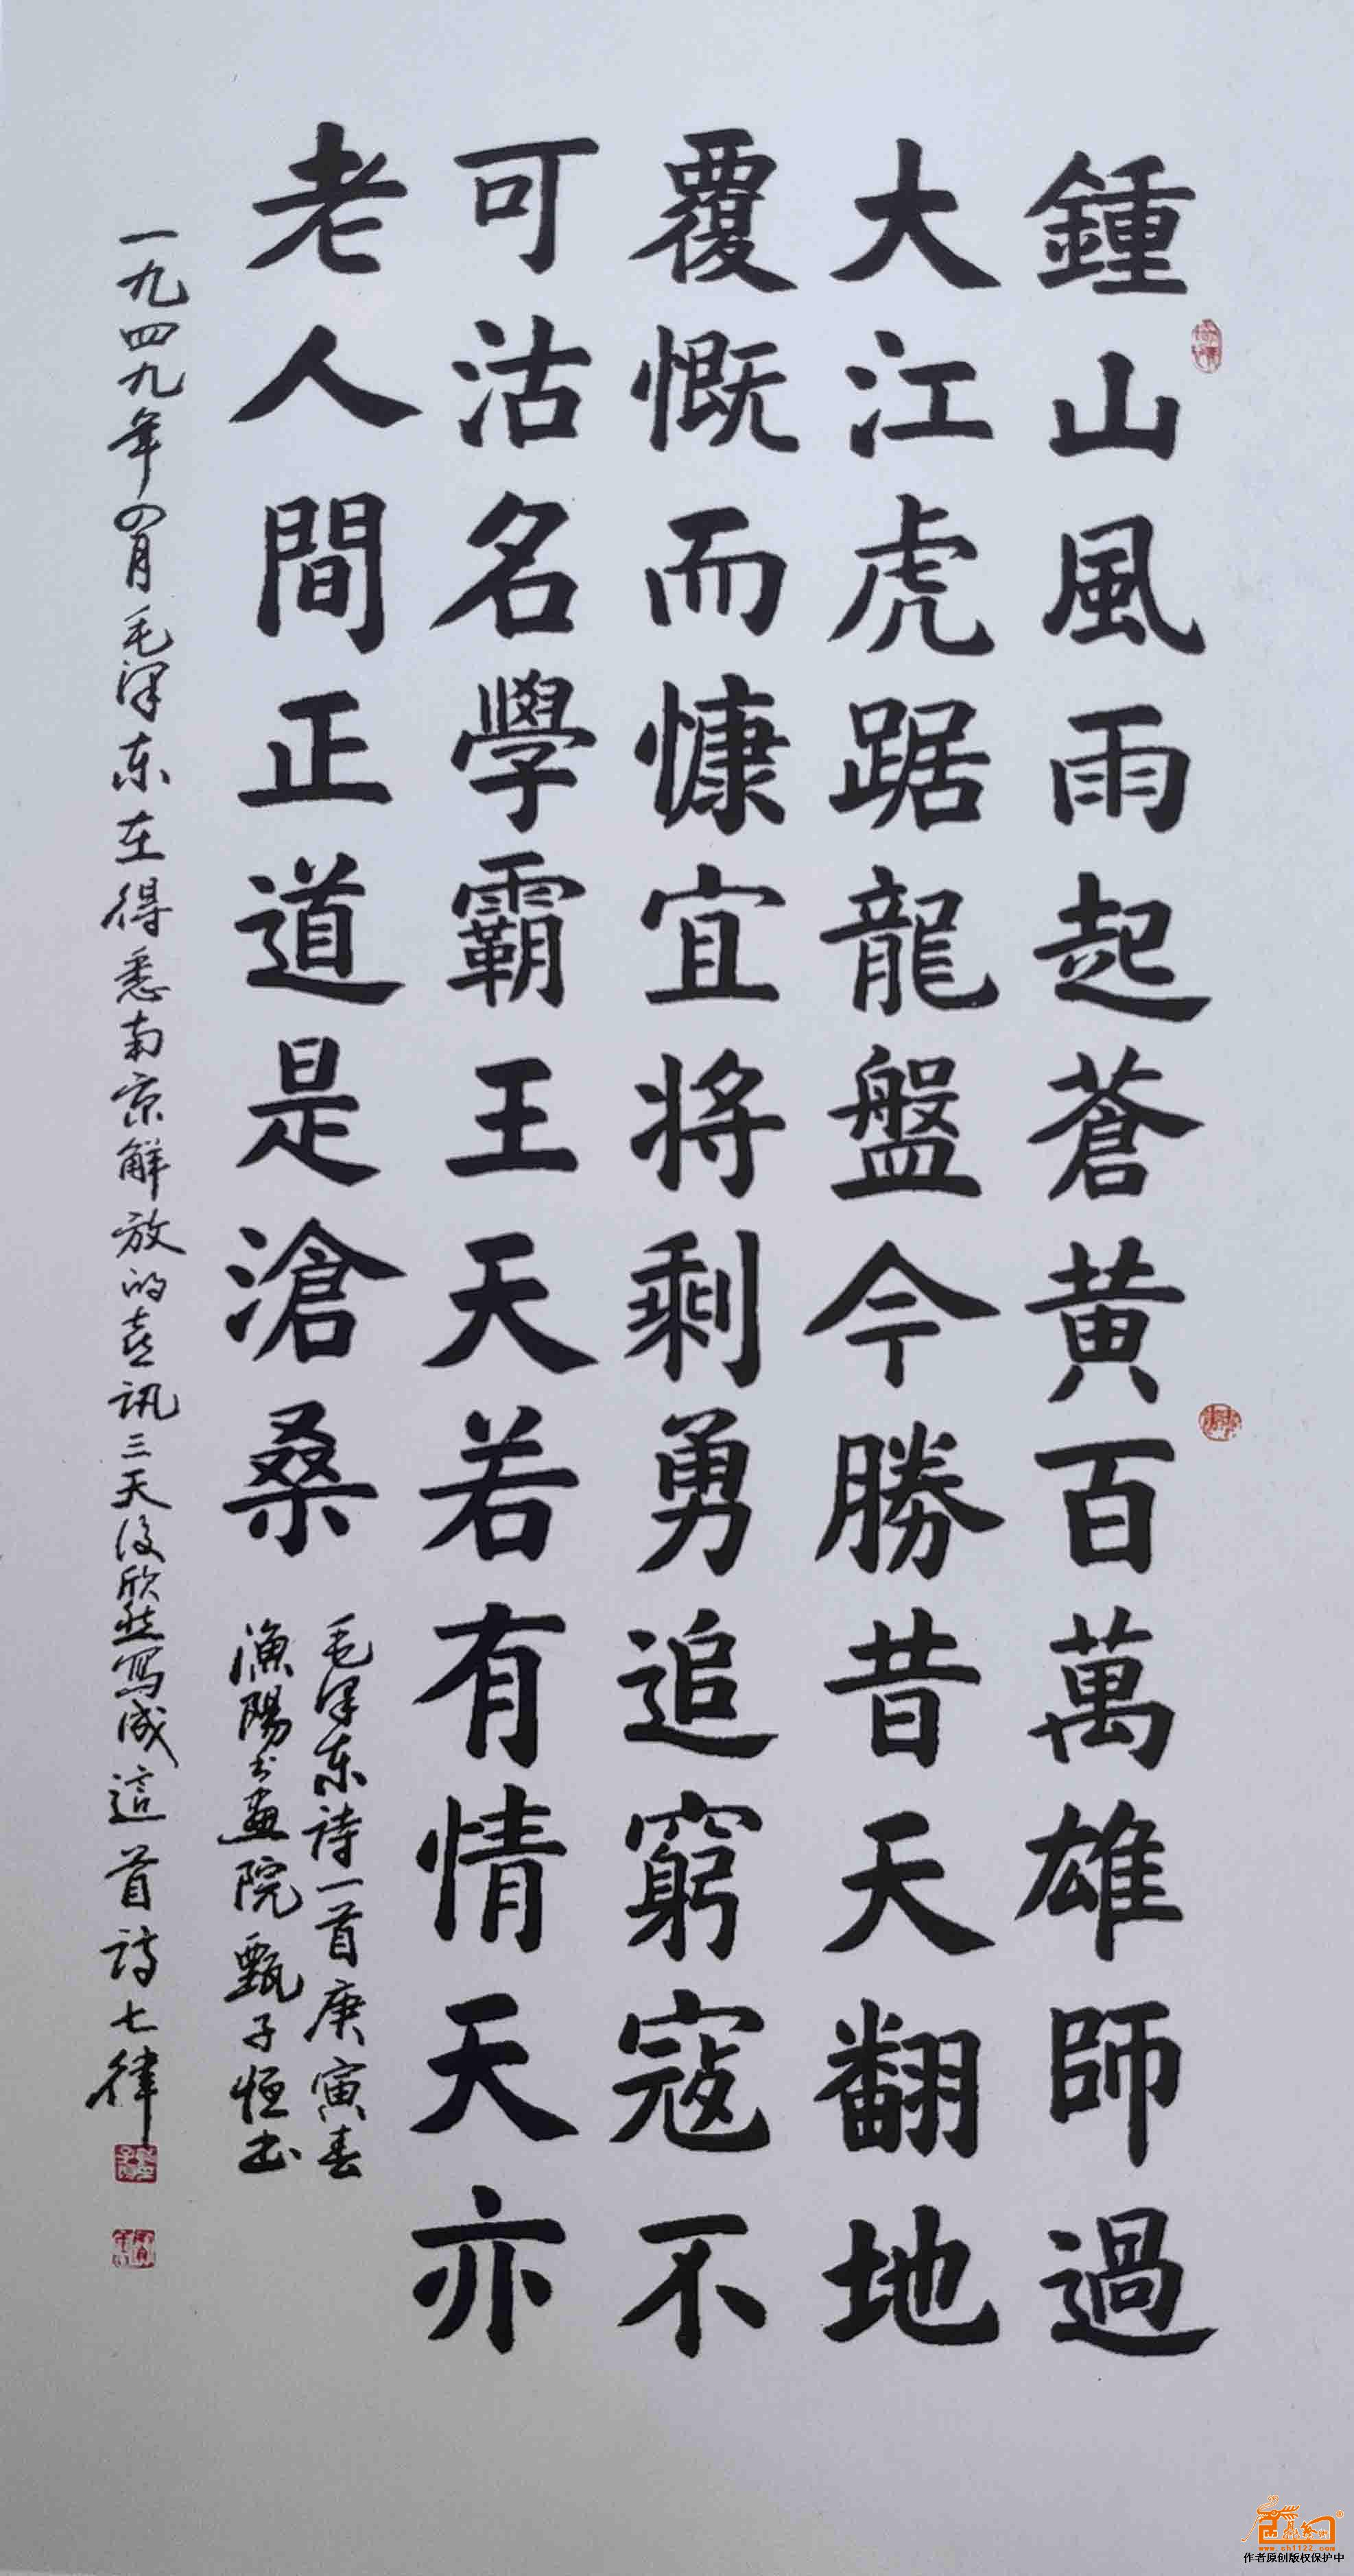 鍾山風雨起蒼黄百萬雄師過
大江虎踞龍盤今勝昔天翻地
覆慨而慷宜将剩勇追窮寇不
可沽名學霸王天若有情天亦
老人間正道是滄桑
毛泽东詩一首庚寅春
漁陽书畫院甄子恒书
一九四九年四月毛泽东在得悉南京解放的喜訊三天後欣然寫成這首詩七律
www.sh1122.com
作者原创版权保护中